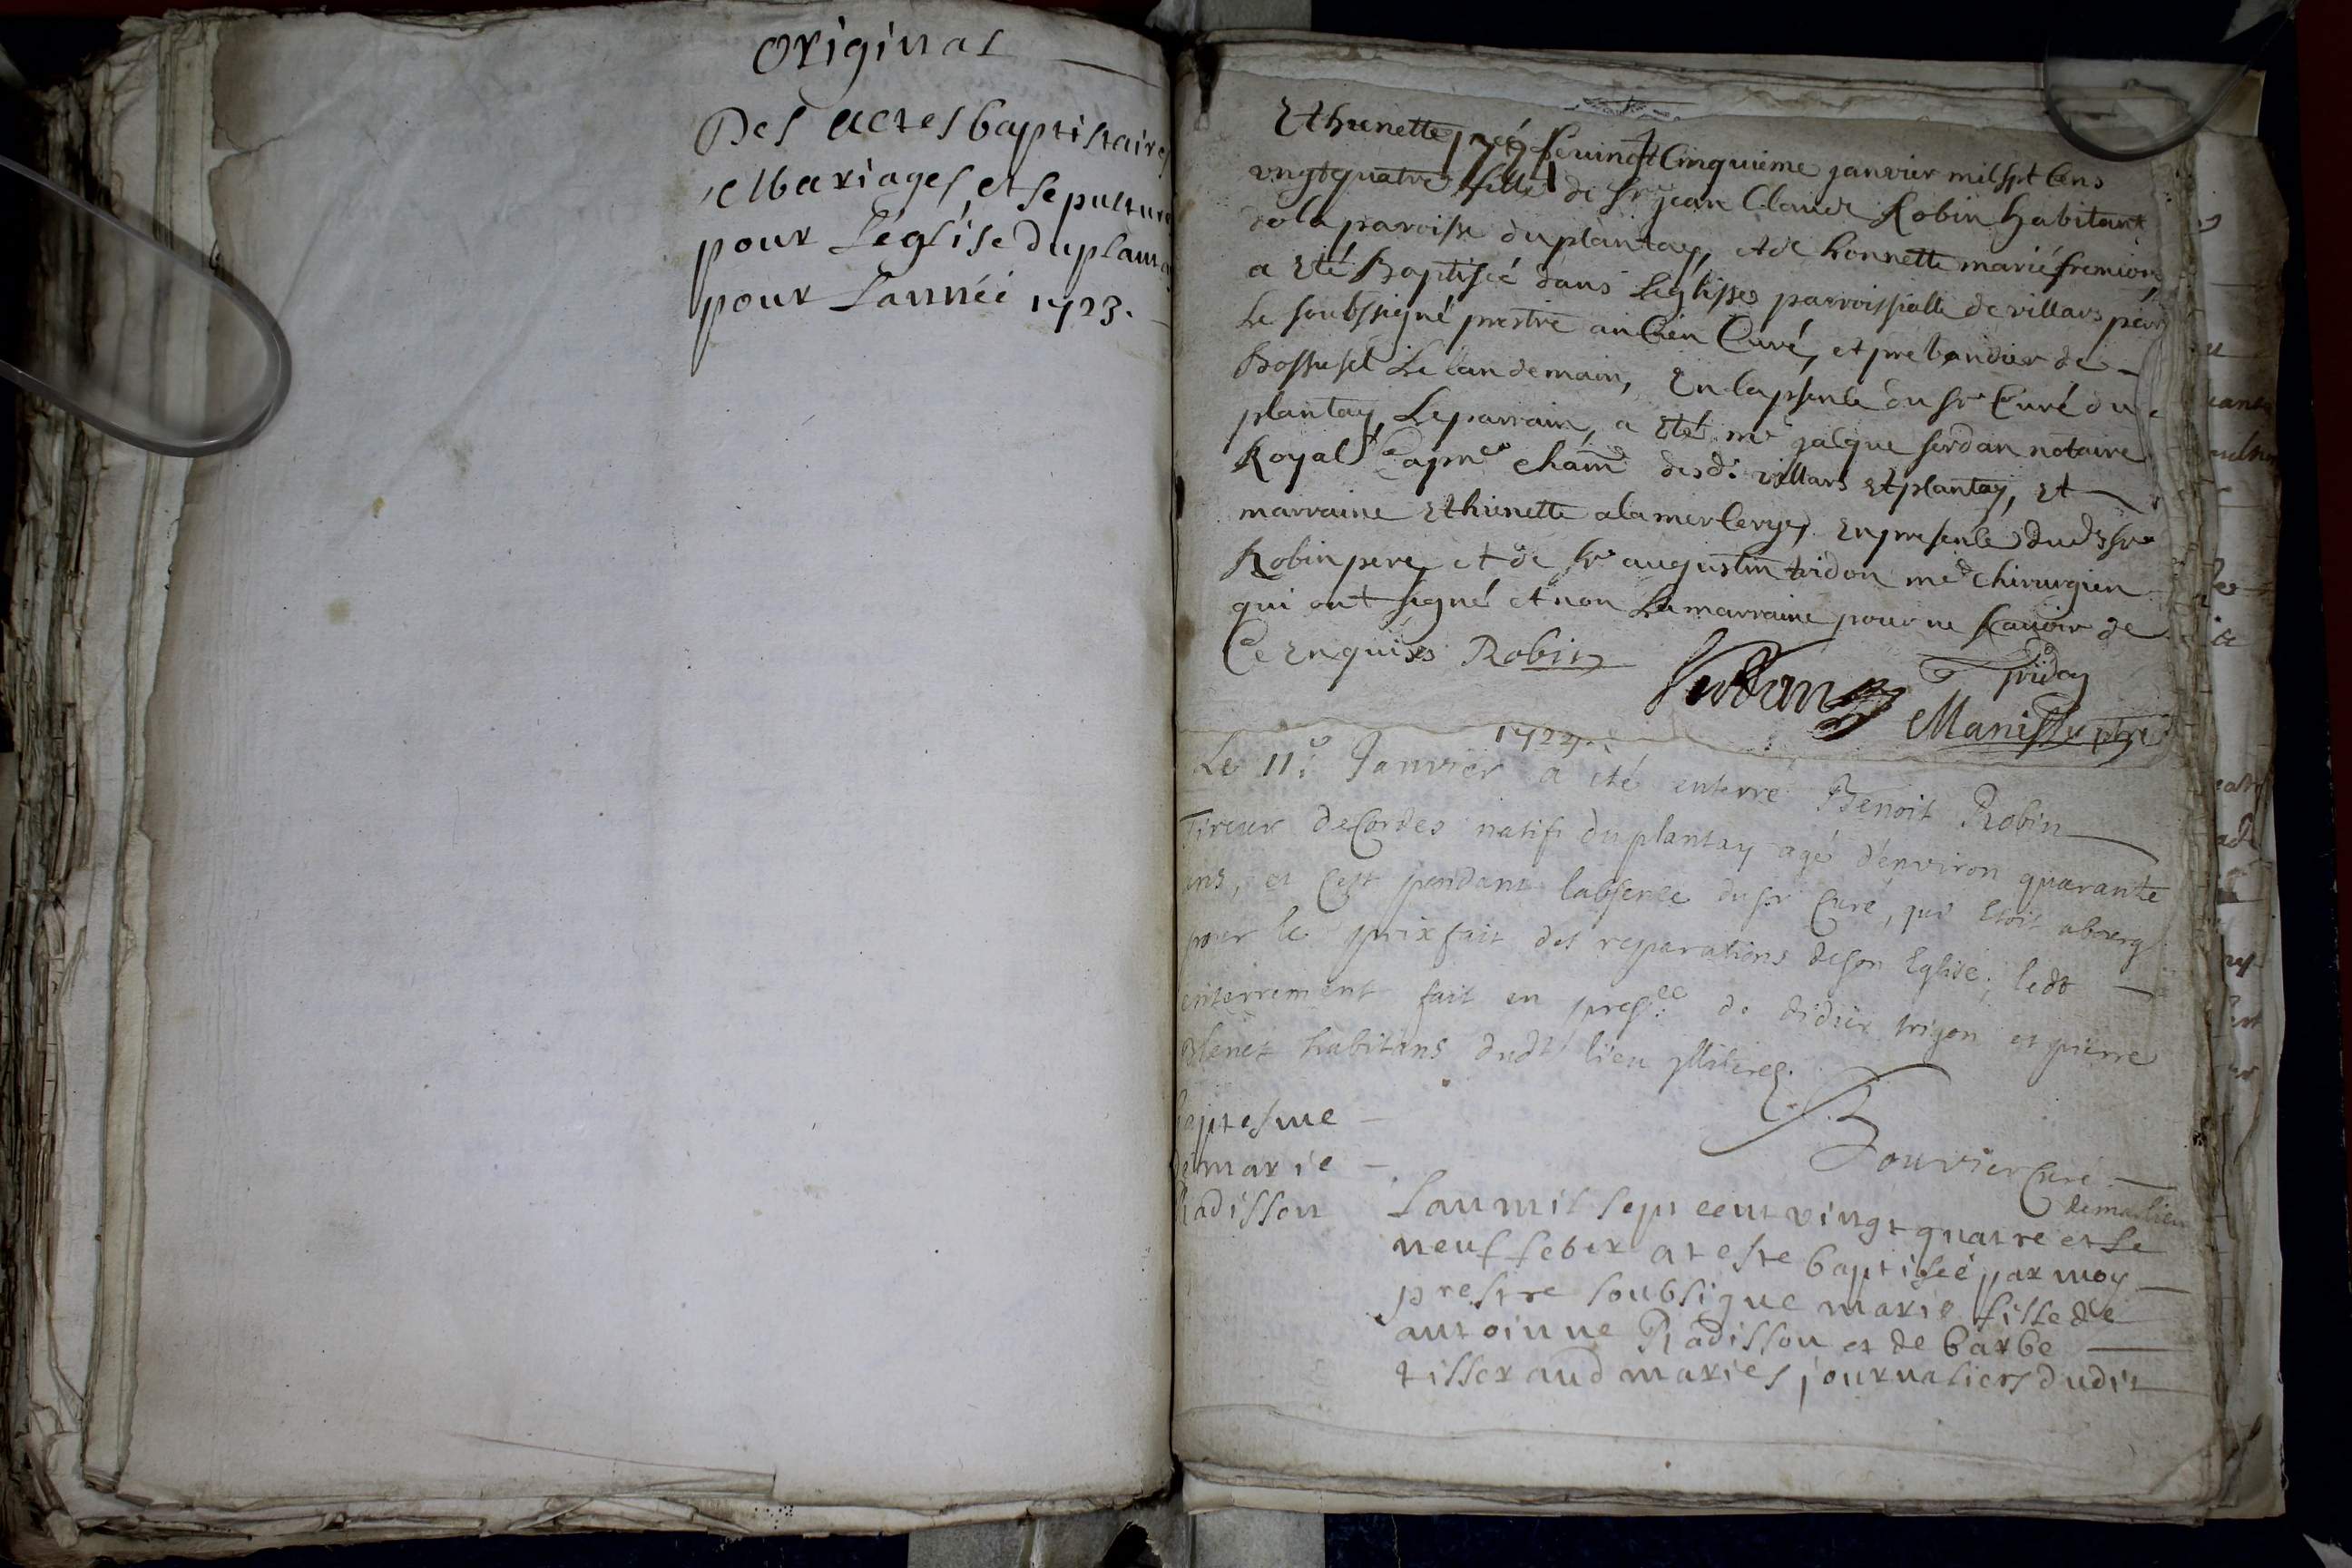 Original
Des actes baptistaires
Mariages, et sepultures
pour Leglise duplanta
pour Lannéé 1723.
1724
Ethienette néé Le vingt Cinquieme janvier mil spt Cens
vingt quatre fille de sr jean Claude Robin habitant
de la paroisse du plantay, et de honnette marié fremion,
a Eté Baptiséé dans Leglisse parroissialle de villars par
Le soubssigné prestre ancien Curé, et prebandier de
Le landemain, En lapsence du sr Curé du
plantay, Le parrain, a Eté me jacque serdan notaire
Royal des d. villars Et plantay, Et
marraine Ethienette alamercerye, En presence dud sr
Robin pere, et de sr augustin tridon me chirurgien
qui ont signé et non La marraine pour ne scavoir de
Ce Enquis Robin
Serdan Tridon
Manissier ptre
1724.
Le 11e Janvier a eté enterré Benoit Robin
Tireur de Cordes natif du plantay agé d'environ quarante
ans, et C'est pendant l'absence du sr Curé, qui Etoit abourg
pour le prixfait des reparations de son Eglise, ledt
enterrement fait en presce de didier trigon et pierre
Blenet habitans dudt lieu Illiterés.
Bouvier Curé
de marlieu
Baptesme
de marie
Radisson
Lan mil sept cent vingt quatre et le
neuf febvr at este baptiséé par moy
prestre soubsigne marie fille de
antoinne Radisson et de barbe
tisserand mariés journaliers dudit